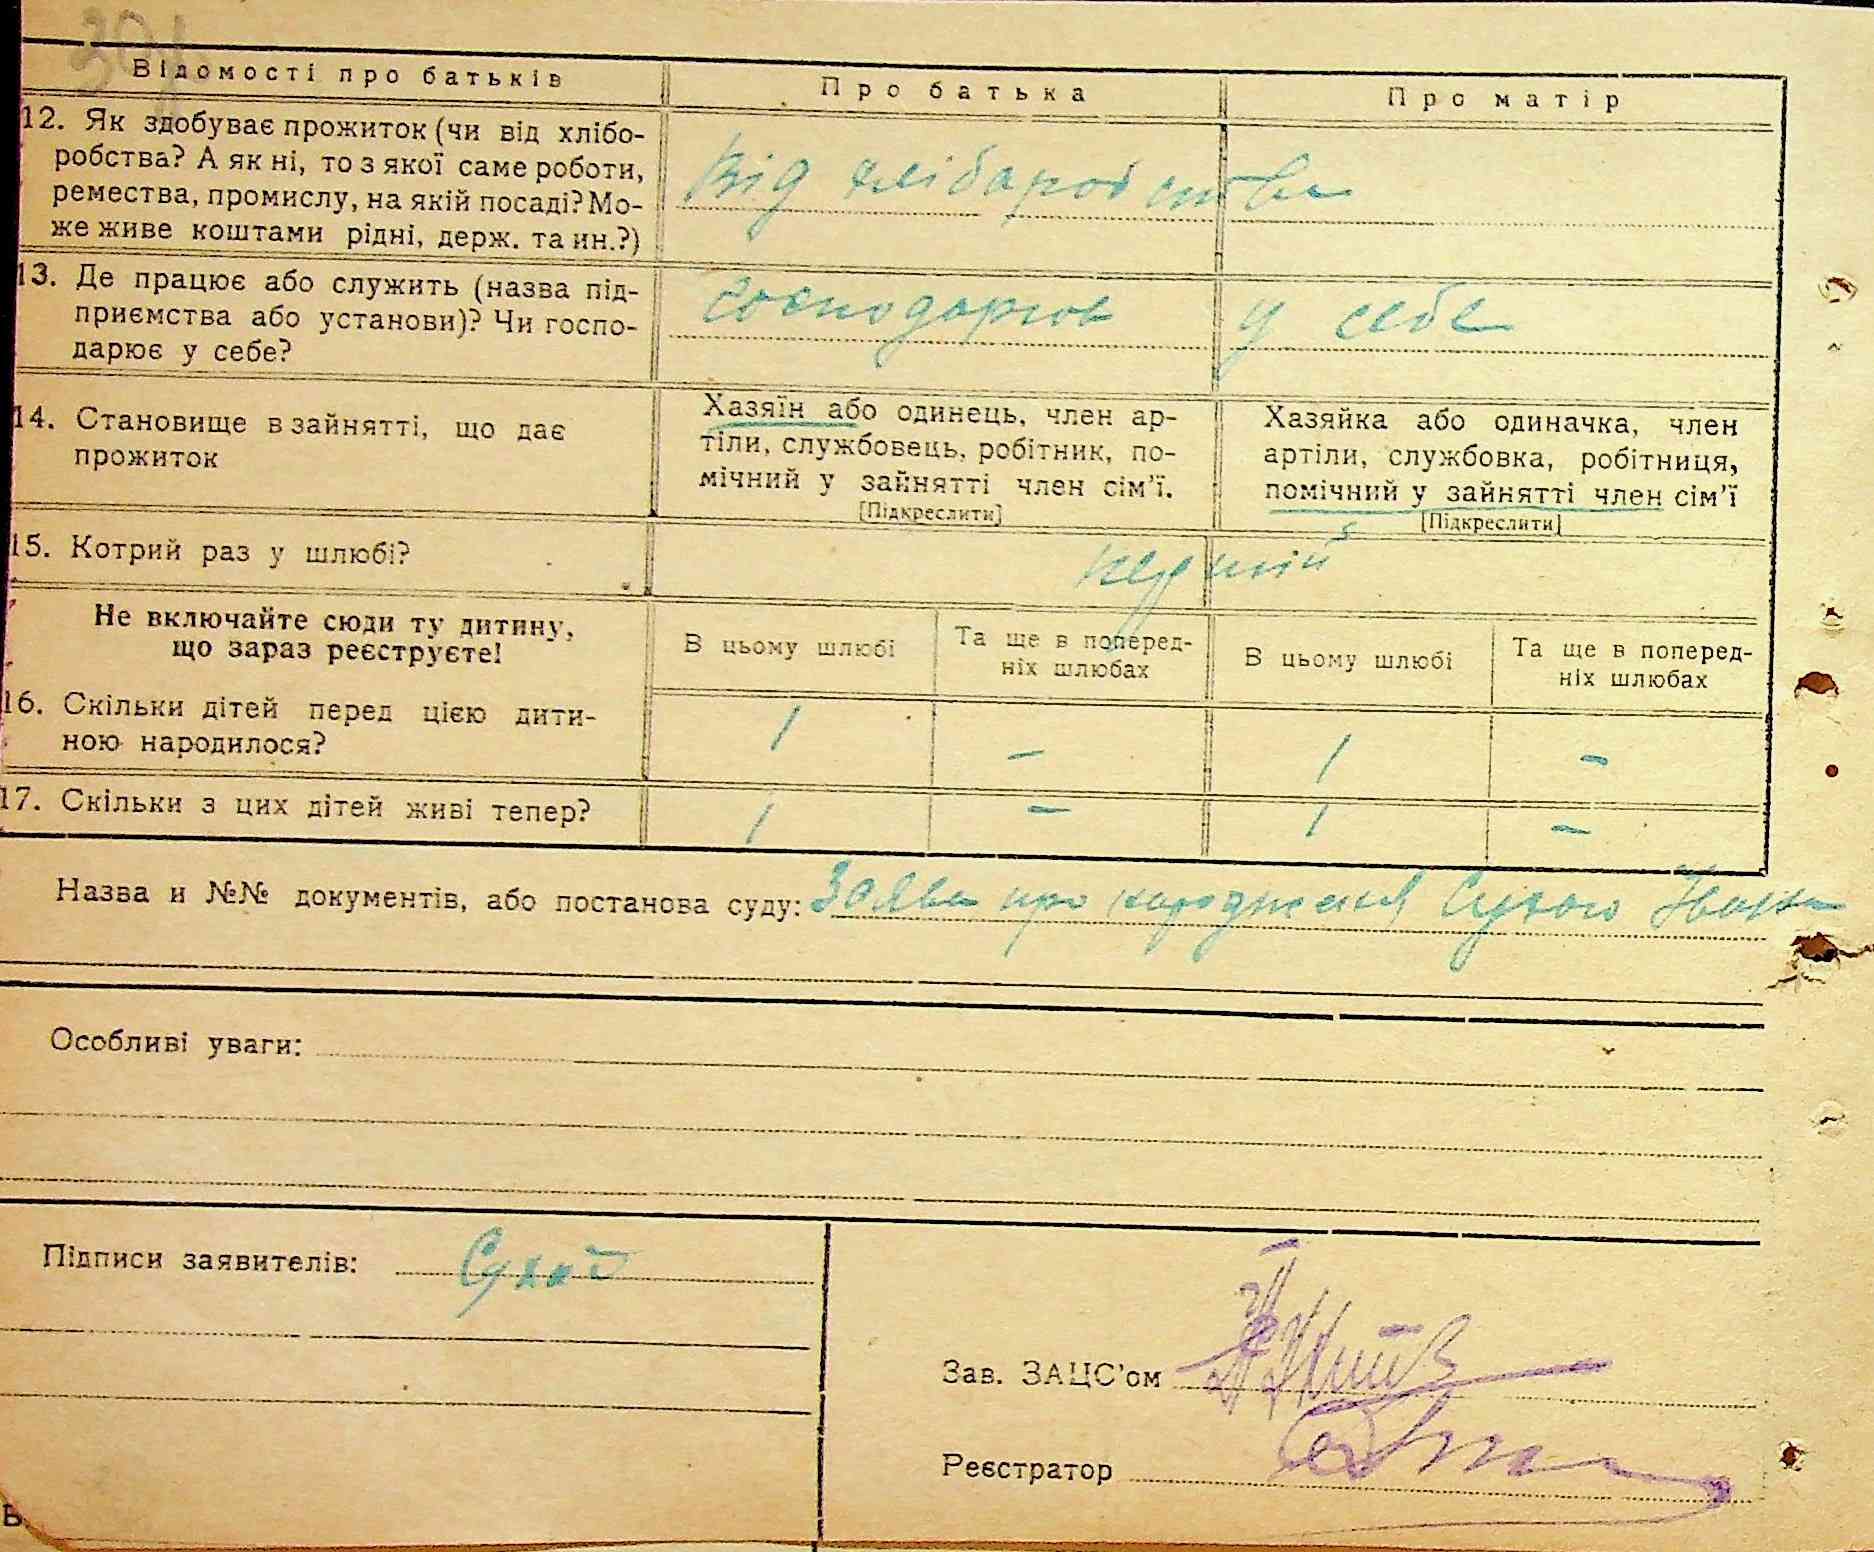 30
Відомості про батьків Про батька Про матір
12. Як здобуває прожиток (чи від хлібо-
робства? А як ні, то з якої саме роботи,
ремества, промислу, на якій посаді? Мо-
же живе коштами рідні, держ. та ин.?)
Від хлібаробства
13. Де працює або служить (назва під-
приємства або установи)? Чи госпо-
дарює у себе?
господарює у себе
14. Становище в зайнятті, що дає
прожиток
Хазяїн або одинець, член ар-
тіли, службовець, робітник, по-
мічний у зайнятті член сім'ї.
[Підкреслити]
Хазяйка або одиначка, член
артіли, службовка, робітниця,
помічний у зайнятті член сім'ї
[Підкреслити]
15. Котрий раз у шлюбі?
перший
Не включайте сюди ту дитину,
що зараз реєструєте!
В цьому шлюбі
Та ще в поперед-
ніх шлюбах
В цьому шлюбі
Та ще в поперед-
ніх шлюбах
16. Скільки дітей перед цією дити-
ною народилося?
1 – 1 –
17. Скільки з цих дітей живі тепер?
1 – 1 –
Назва и №№ документів, або постанова суду: Заява про народження Сухого Івана
Особливі уваги:
Підписи заявителів: Сухой
Зав. ЗАЦС'ом
Реєстратор
В